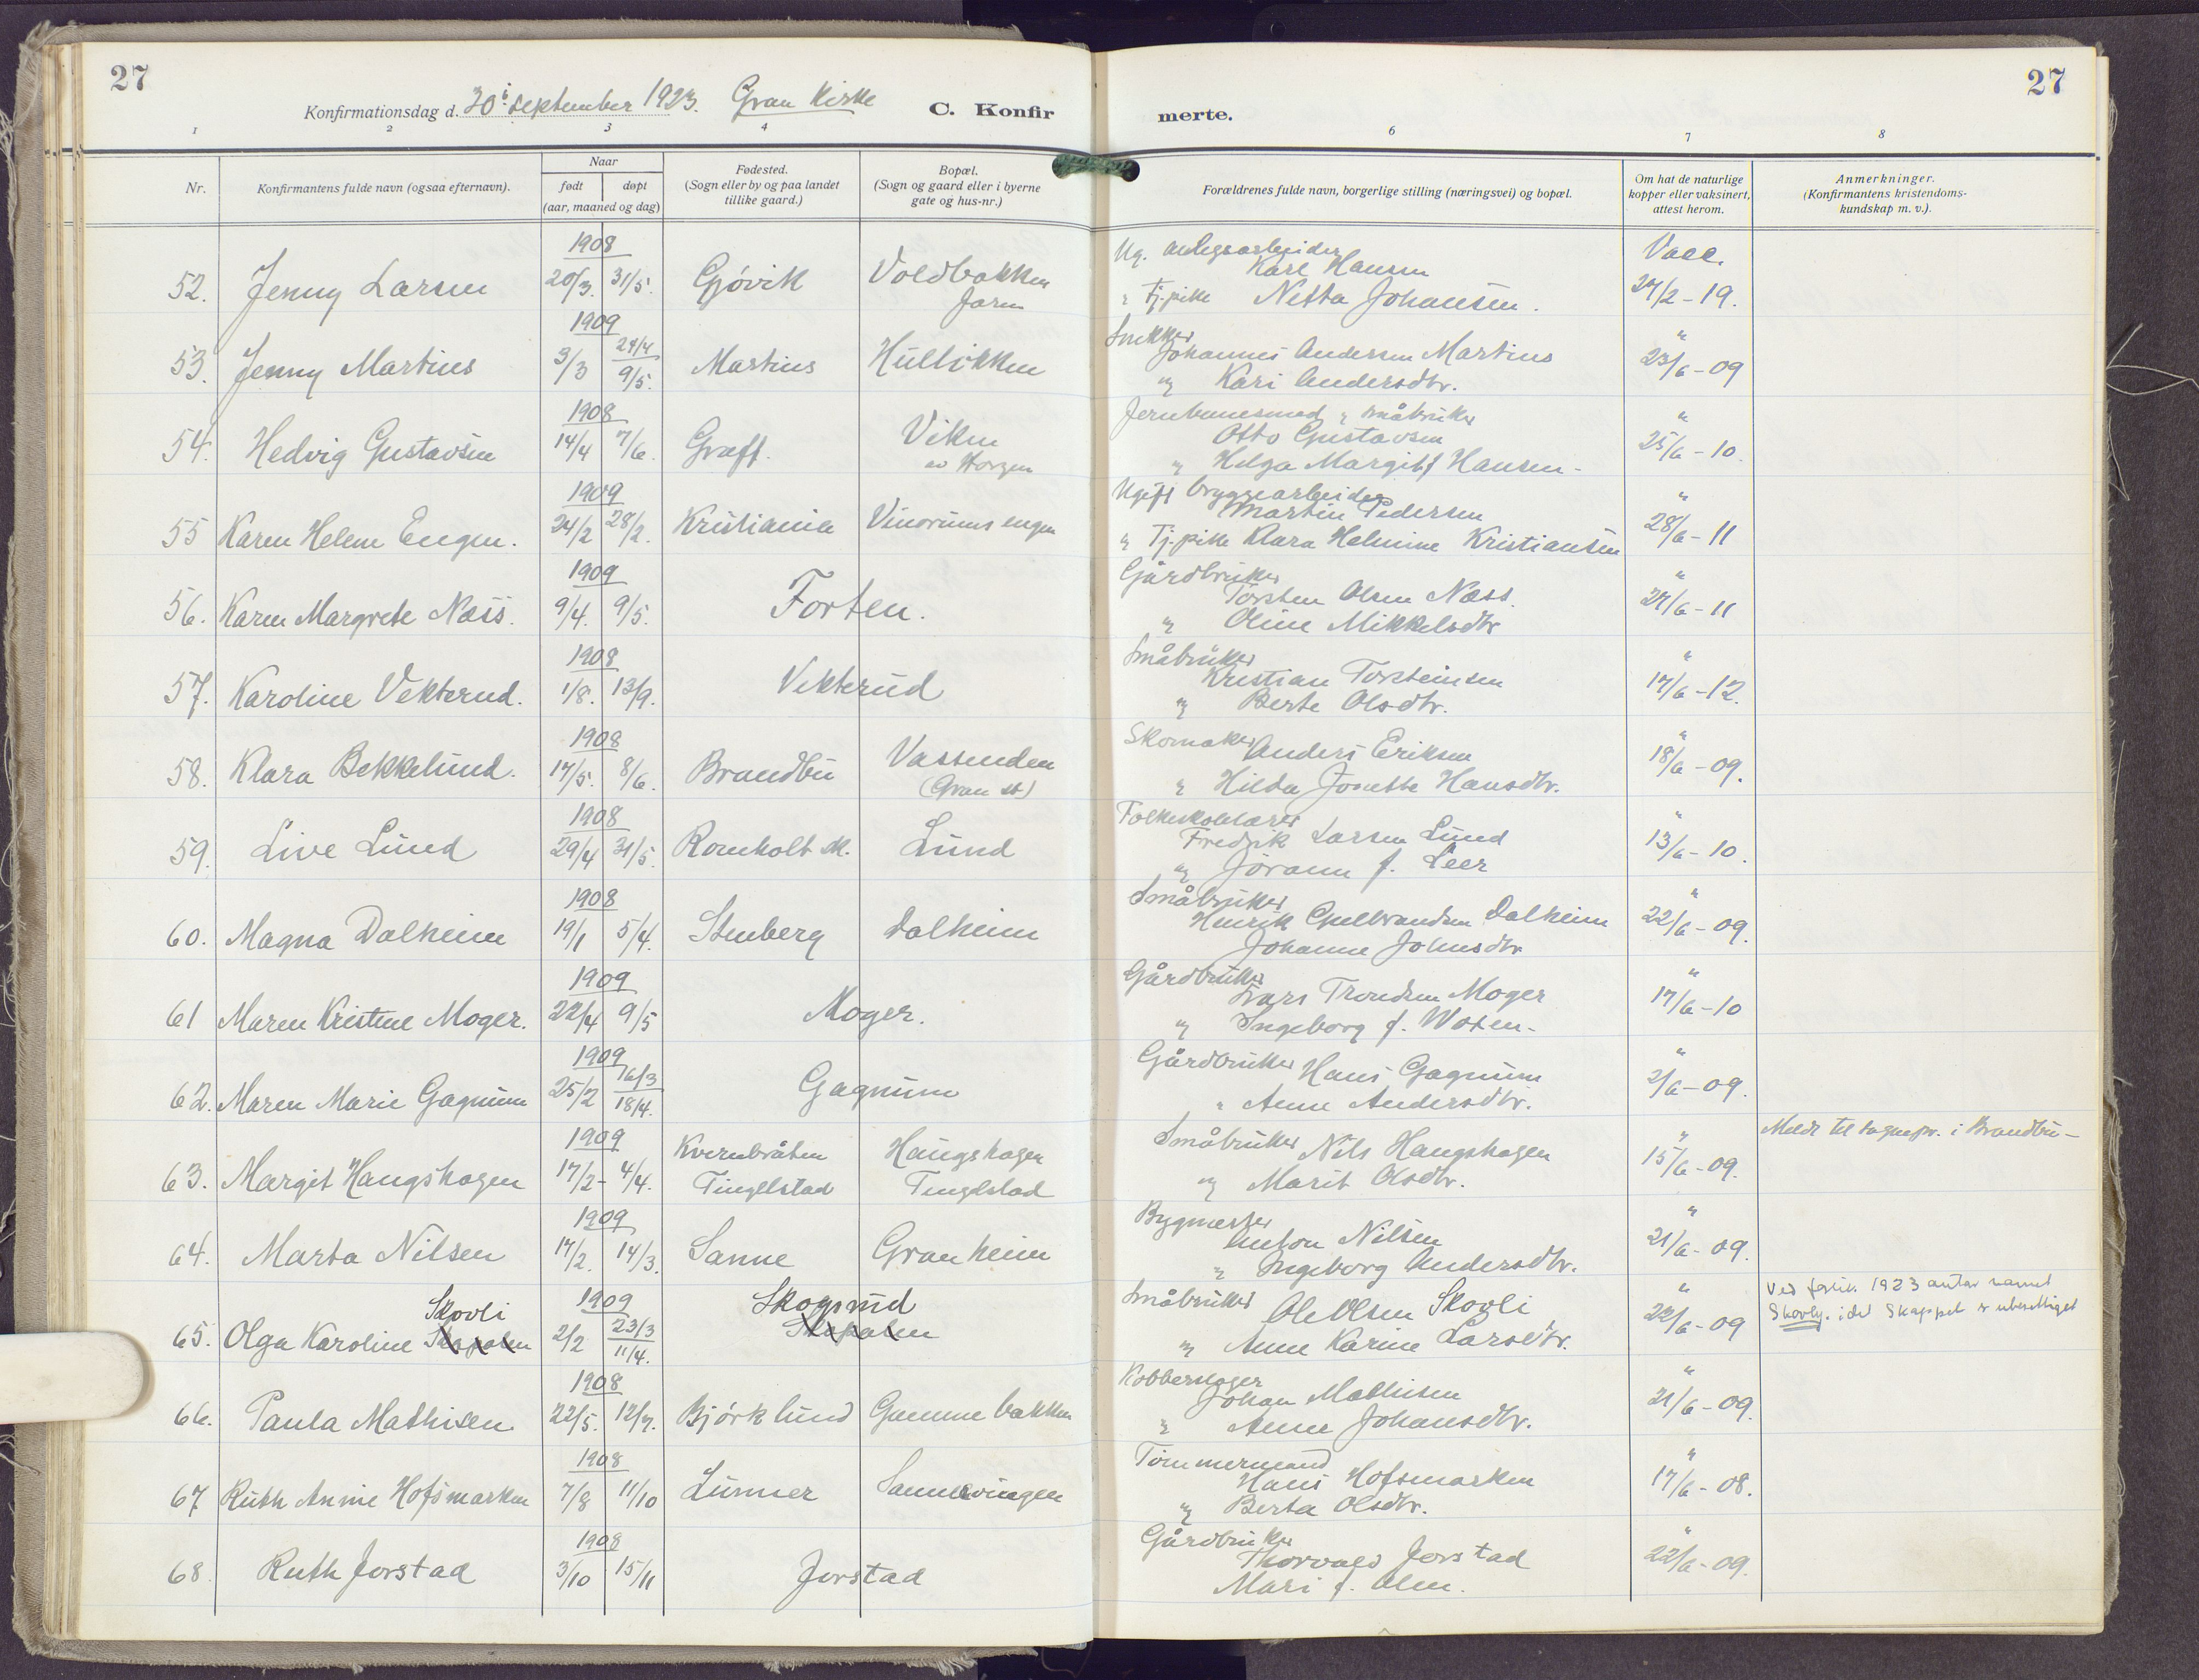 27
27
Konfirmationsdag d. 30 september 1923. Gran Kirke
C. Konfirmerte.
1 2 3 4 6 7 8
Nr.
Konfirmantens fulde navn (ogsaa efternavn).
Naar
født døpt
(aar, maaned og dag)
Fødested.
(Sogn eller by og paa landet
tillike gaard.)
Bopæl.
(Sogn og gaard eller i byerne
gate og hus-nr.)
Forældrenes fulde navn, borgerlige stilling (næringsvei) og bopæl.
Om hat de naturlige
kopper eller vaksinert,
attest herom.
Anmerkninger.
(Konfirmantens kristendoms-
kundskap m. v.).
1908
52. Jenny Larsen 20/3. 31/5. Gjøvik Voldbakken
Jaren
Ug. anlegsarbeider
Karl Hansen
" Tj.pike Netta Johansen.
Vacc.
27/2 - 19.
1909
53. Jenny Martins 3/3 24/4 9/5. Martins Hullikken
Snekker
Johannes Andersen Martins
" Kari Andersdtr.
" 23/6 - 09
1908
54. Hedvig Gustavsen 14/4 7/6. Græff. Viken
av Horgen
Jernbanesmed " småbruker
Otto Gustavsen
" Helga Margit f Hansen -
" 25/6 - 10.
1909
55 Karen Helene Engen. 24/2 28/2. Kristiania Vinorums engen
Ugift bryggearbeider
Martin Pedersen
" Tj.pike Klara Helmine Kristiansen
" 28/6 - 11
1909
56. Karen Margrete Næss. 9/4. 9/5. Forten.
Gårdbruker
Torsten Olsen Næss.
" Oline Mikkelsdtr
" 27/6 - 11
1908
57. Karoline Vekterud. 1/8. 13/9. Vekterud
Småbruker
Kristian Torsteinsen
" Berte Olsdtr.
" 17/6 - 12.
1908
58. Klara Bekkelund. 17/5. 8/6. Brandbu Vassenden
(Gran st)
Skomaker Anders Eriksen
" Hilda Jonette Hansdtr.
" 18/6 - 09.
1908
59. Live Lund 29/4 31/5. Romholt sk. Lund
Folkeskolelærer
Fredrik Larsen Lund
" Jørann f. Leer
" 13/6 - 10.
1908
60. Magna Dalheim 19/1 5/4. Stenberg Dalheim
Småbruker
Henrik Gulbrandsen Dalheim
Johanne Johnsdtr
" 22/6 - 09.
1909
61 Maren Kristine Moger. 22/4 9/5 Moger.
Gårdbruker
Lars Trondsen Moger
" Ingeborg f. Woxen -
" 17/6 - 10
1909
62. Maren Marie Gagnum 25/2 16/3 18/4. Gagnum
Gårdbruker Hans Gagnum
" Anne Andersdtr.
" 2/6 - 09.
1909
63. Margit Haugshagen 17/2 - 4/4. Kvernbråten Haugshagen
Tingelstad Tingelstad
Småbruker Nils Haugshagen
" Marit Olsdtr.
" 15/6 - 09.
Meldt til sognepr. i Brandbu -
1909
64. Marta Nilsen 17/2. 14/3. Sanne Granheim
Bygmester
Anton Nilsen
" Ingeborg Andersdtr.
" 21/6 - 09.
1909
Skovli Skogsrud
65. Olga Karoline Skapalen 2/2 23/3 11/4. Skapalen
Småbruker Ole Olsen Skovli
" Anne Karine Larsdtr.
" 22/6 - 09
Ved 1923 antar navnet
Skovly. idet Skappel er uberettiget
1908
66. Paula Mathisen 22/5. 12/7. Bjørklund Gamme bakken
Kobberslager
Johan Mathisen
" Anne Johansdtr.
" 21/6 - 09.
1908
67 Ruth Annie Hofsmarken 7/8 11/10 Lunner Sannesvingen
Tømmermand
Hans Hofsmarken
" Berta Olsdtr.
" 17/6 - 08.
1908
68. Ruth Jorstad 3/10 15/11 Jorstad
Gårdbruker
Thorvald Jorstad
Mari f. Alm.
" 22/6 - 09.